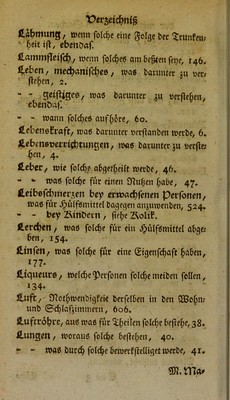 Verzeichniß
Lähmung, wenn solche eine Folge der Trunken-
heit ist, ebendas.
Lammsfleisch, wenn solches am besten seye, 146.
Leben, mechanisches, was darunter zu ver-
stehen, 2.
- - geistiges, was darunter zu verstehen,
ebendas.
- - wann solches aufhöre, 60.
Lebenskraft, was darunter verstanden werde, 6.
Lebensverrichtungen, was darunter zu verste-
hen, 4.
Leber, wie solche abgetheilt werde, 46.
- - was solche für einen Nutzen habe, 47.
Leibschmerzen bey erwachsenen Personen,
was für Hülfsmittel dagegen anzuwenden, 524.
- - bey Kindern, siehe Kolik.
Lerchen, was solche für ein Hülfsmittel abge-
ben, 154.
Linsen, was solche für eine Eigenschaft haben,
177.
Liqueurs, welche Personen solche meiden sollen,
134.
Luft, Nothwendigkeit derselben in den Wohn-
und Schlafzimmern, 606.
Luftröhre, aus was für Theilen solche bestehe, 38.
Lungen, woraus solche bestehen, 40.
- - was durch solche bewerkstelliget werde, 41.
M. Ma-